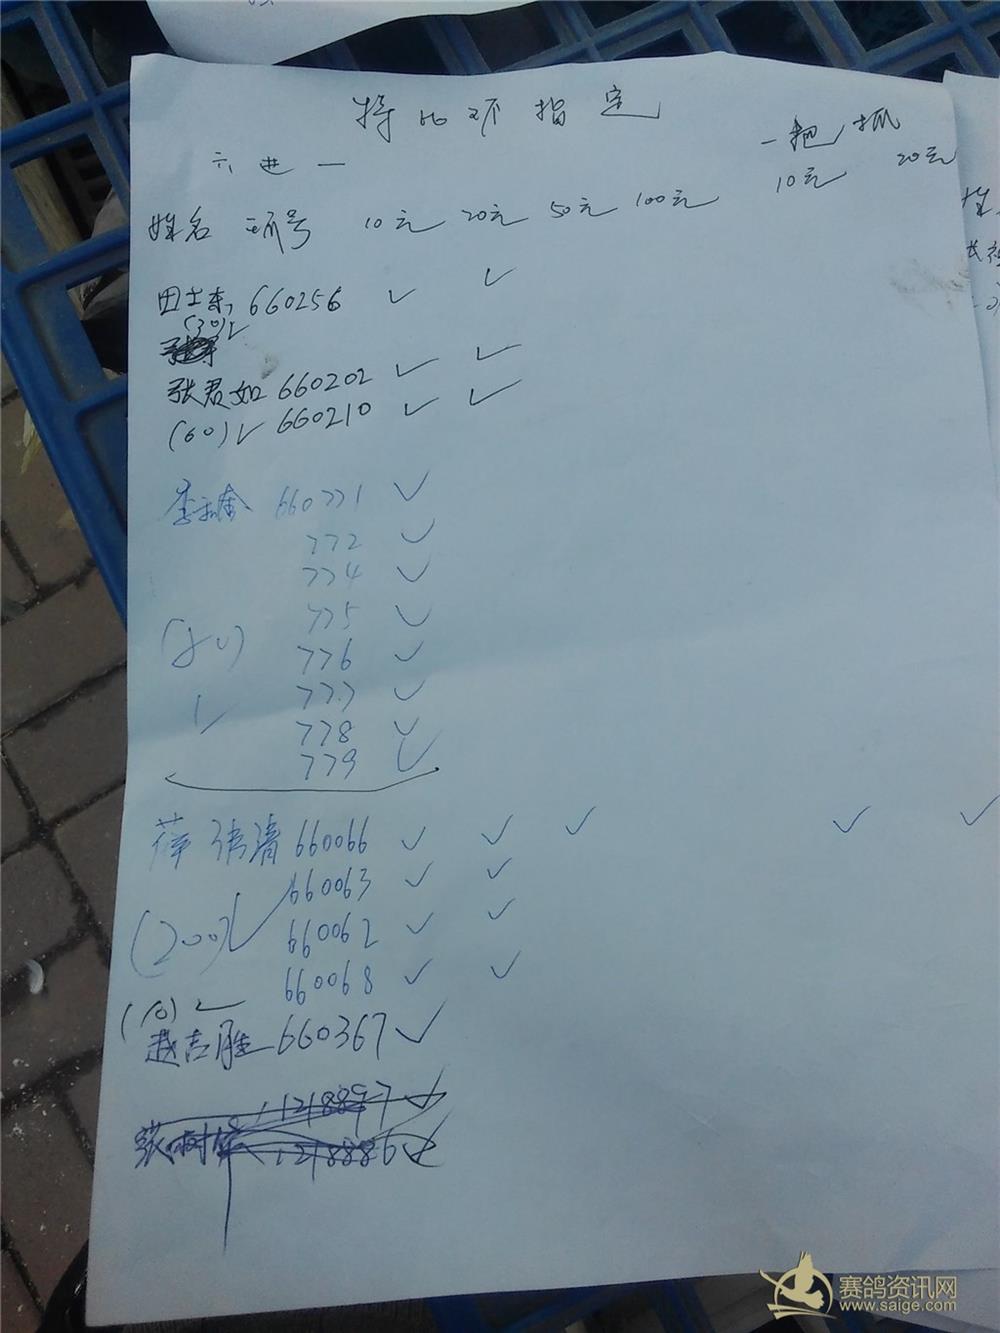 特比环指定
六进一 一把抓
姓名 环号 10元 20元 50元 100元 10元 20元
田士东 660256 ✓ ✓
(30) ✓
张君如 660202 ✓ ✓
(60) ✓ 660210 ✓ ✓
660771 ✓
772 ✓
774 ✓
775 ✓
776 ✓
777 ✓
778 ✓
779 ✓
660066 ✓ ✓ ✓ ✓ ✓
660063 ✓ ✓
(200) ✓ 660062 ✓ ✓
660068 ✓ ✓
(10) ✓
吉胜 660367 ✓
1218897 ✓
张树 1218886 ✓
赛鸽资讯网
www.saige.com